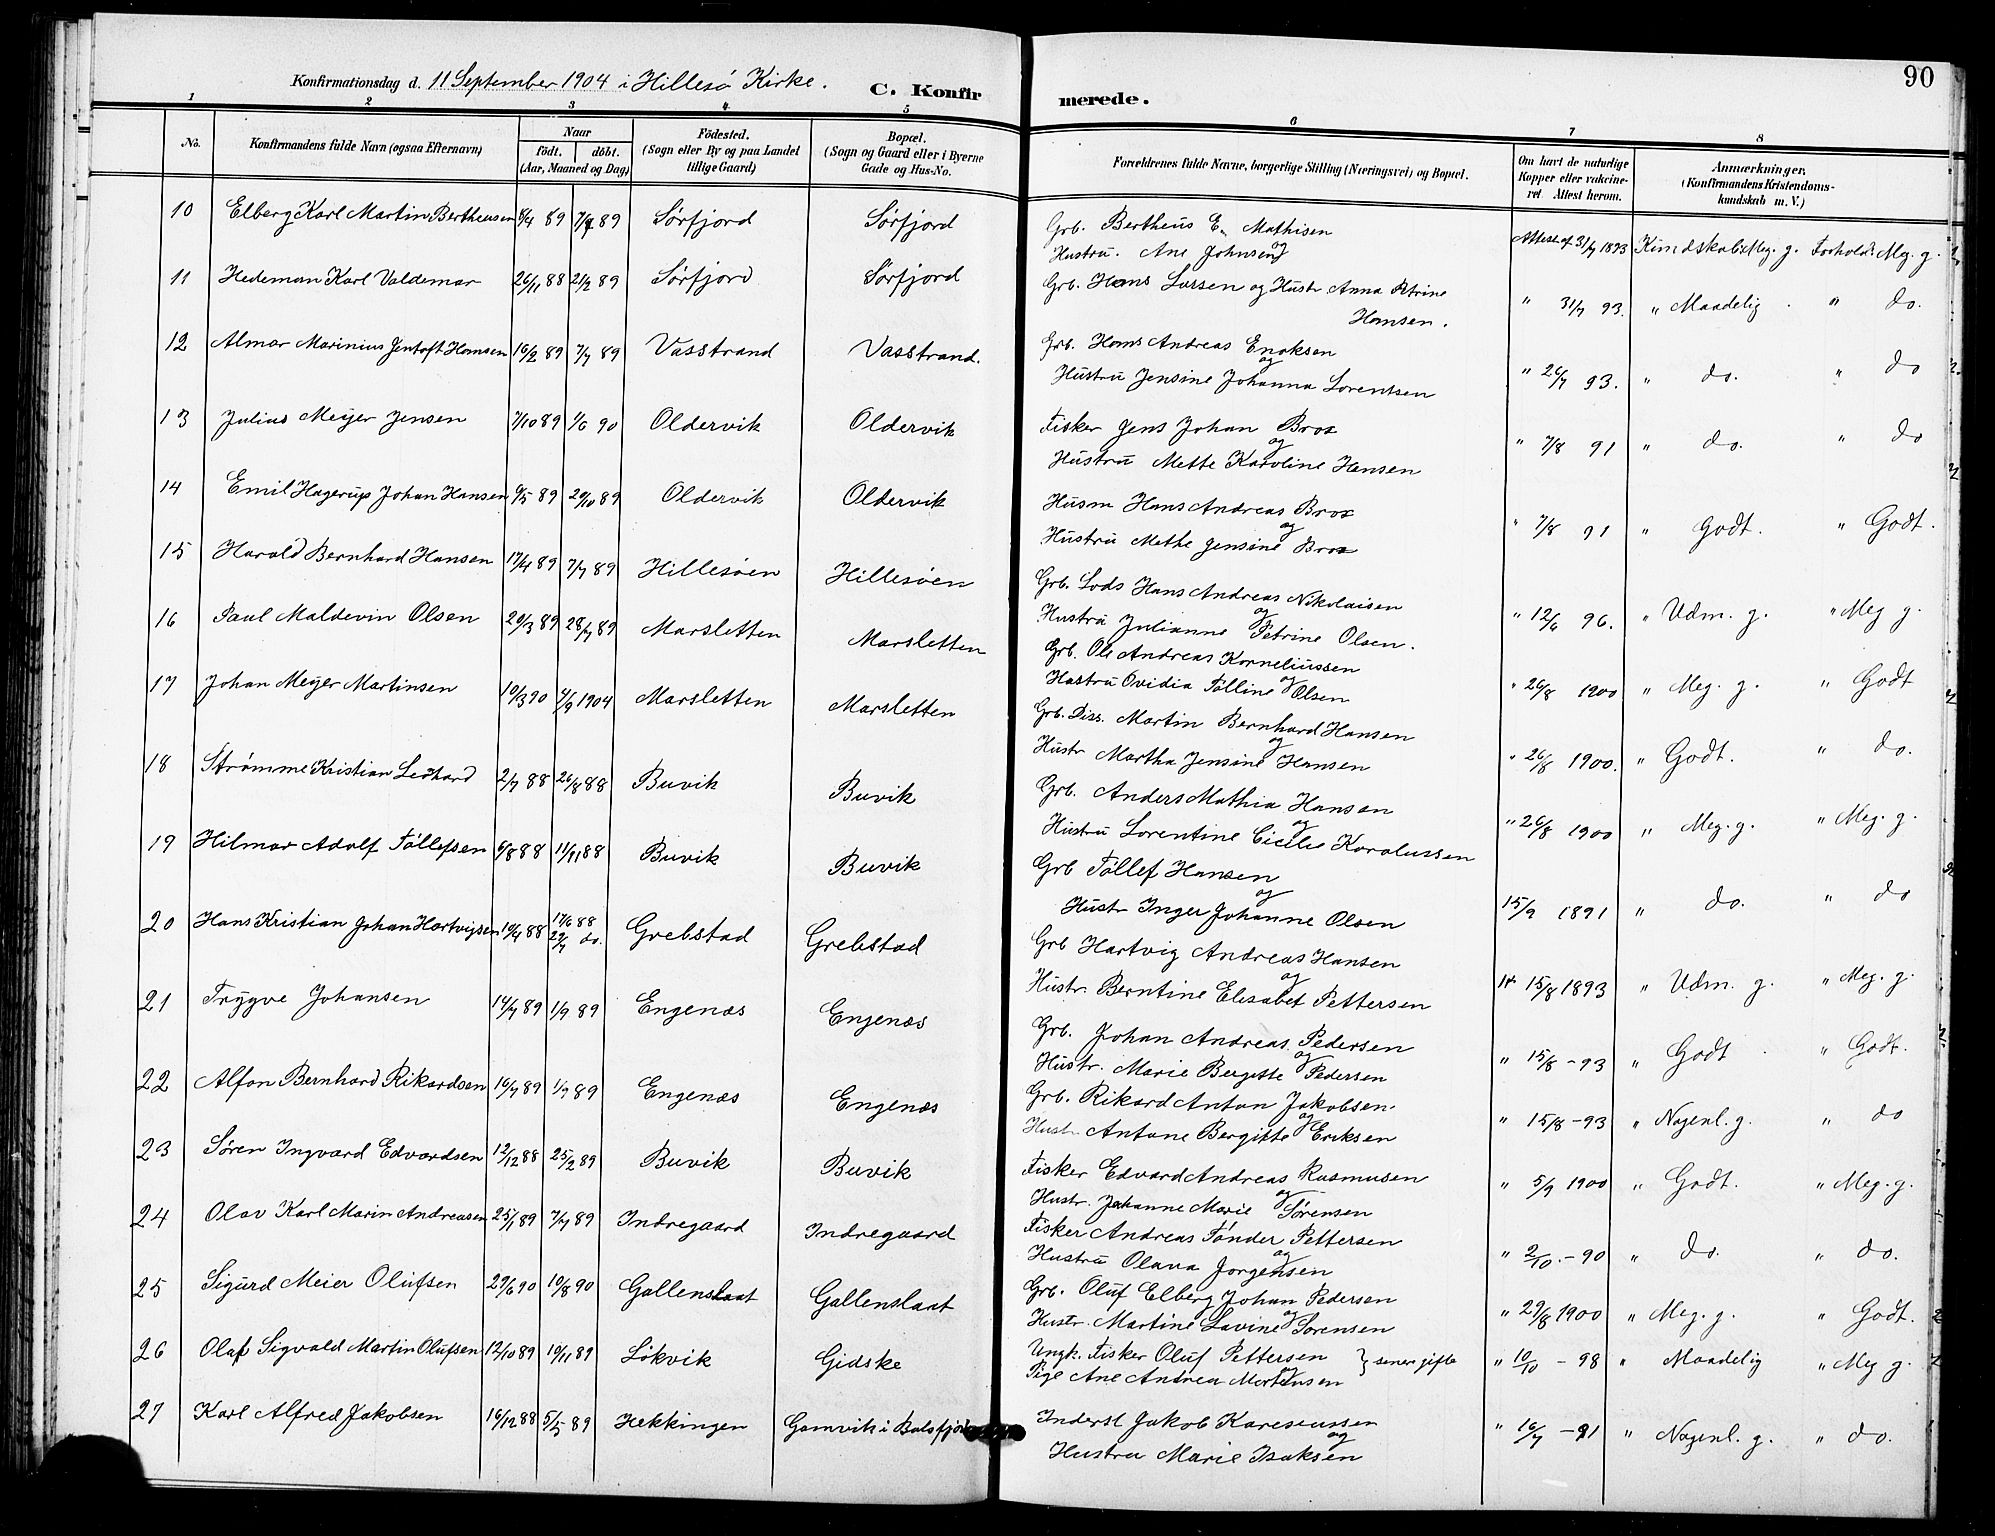 90
Konfirmationsdag d. 11 September 1904 i Hillesø Kirke.
C. Konfirmerede.
1 2 3 4 5 6 7 8
No.
Konfirmandens fulde Navn (ogsaa Efternavn)
Naar
födt. döbt.
(Aar, Maaned og Dag)
Födested.
(Sogn eller By og paa Landet
tillige Gaard)
Bopæl.
(Sogn og Gaard eller i Byerne
Gade og Hus-No.
Forældrenes fulde Navne, borgerlige Stilling (Næringsvei) og Bopæl.
Om havt de naturlige
Kopper eller vakcine-
ret Attest herom.
Anmærkninger,
(Konfirmandens Kristendoms-
kundskab m. V.)
10 Elberg Karl Martin Bertheusen 8/4 89 7/7 89 Sørfjord Sørfjord Grb. Bertheus E. Mathisen
og
Hustru. Ane Johnsen Attest af 31/7 1893 Kundskab: Meg. g. Forhold: Meg. g.
11 Hedeman Karl Valdemar 26/11 88 21/2 89 Sørfjord Sørfjord Grb. Hans Larsen og Hustr Anna Petrine
Hansen. " 31/7 93. " Maadelig " do.
12 Almar Marinius Jentoft Hansen 16/2 89 7/7 89 Vasstrand Vasstrand. Grb. Hans Andreas Enoksen
og
Hustru Jensine Johanna Lorentsen " 26/7 93. " do. " do
13 Julius Meyer Jensen 7/10 89 1/6 90 Oldervik Oldervik Fisker Jens Johan Brox
og
Hustru Mette Karoline Hansen " 7/8 91 " do. " do
14 Emil Hagerup Johan Hansen 9/5 89 20/10 89 Oldervik Oldervik Husm Hans Andreas Brox
og
Hustru Methe Jensine Brox " 7/8 91 " Godt. " Godt.
15 Harald Bernhard Hansen 17/4 89 7/7 89 Hillesøen Hillesøen Grb. Lods Hans Andreas Nikolaisen
og
Hustru Julianne Petrine Olsen. " 12/6 96. " Udm. g. " Meg g.
16 Paul Maldevin Olsen 29/3 89 28/7 89 Marsletten Marsletten Grb. Ole Andreas Korneliussen
og
Hustru Ovidia Tølline Olsen " 26/8 1900 " Meg. g. " Godt
17 Johan Meyer Martinsen 10/3 90 4/9 1904 Marsletten Marsletten Grb. Diss. Martin Bernhard Hansen
og
Hustr Martha Jensine Hansen " 26/8 1900. " Godt. " do.
18 Strømme Kristian Ledhard 2/7 88 26/8 88 Buvik Buvik Grb. Anders Mathia Hansen
og
Hustru Lorentine Cicilie Karolussen " 26/8 1900 " Meg. g. " Meg. g.
19 Hilmar Adolf Tøllefsen 6/8 88 11/11 88 Buvik Buvik Grb Tøllef Hansen
og
Hustr Inger Johanne Olsen 15/9 1891 " do. " do
20 Hans Kristian Johan Hartvigsen 19/4 88 17/6 88
22/7 do. Grebstad Grebstad Grb Hartvig Andreas Hansen
og
Hustr. Berntine Elisabet Pettersen 15/8 1893 " Udm. g. " Meg. g.
21 Trygve Johansen 14/7 89 1/9 89 Engenæs Engenæs Grb. Johan Andreas Pedersen
og
Hustr. Marie Bergitte Pedersen " 15/8 - 93 " Godt " Godt.
22 Alfon Bernhard Rikardsen 16/7 89 1/9 89 Engenæs Engenæs Grb. Rikard Anton Jakobsen.
og
Hustr Antone Bergitte Eriksen " 15/8 - 93 " Nogenl. g. " do
23 Søren Ingvard Edvardsen 12/12 88 25/2 89 Buvik Buvik Fisker Edvard Andreas Rasmusen
og
Hustr. Johanne Marie Sørensen " 5/9 1900 " Godt. " Meg. g.
24 Olav Karl Marin Andreasen 25/1 89 7/7 89 Indregaard Indregaard Fisker Andreas Tønder Pettersen
og
Hustru Olava Jørgensen " 2/10. - 90 " do. " do.
25 Sigurd Meier Olufsen 29/6 90 10/8 90 Gallenslaat Gallenslaat Grb. Oluf Elberg Johan Pedersen
og
Hustr. Martine Lavine Sørensen " 29/8 1900 " Meg. g. " Godt.
26 Olaf Sigvald Martin Olufsen 12/10 89 10/11 89 Løkvik Gidske Ungk. Fisker Oluf Pettersen
og
Pige Ane Andrea Mortensen } senere gifte " 10/10 - 98 " Maadelig " Meg g.
27 Karl Alfred Jakobsen 16/12 88 5/5 89 Hekkingen Gamvik i Balsfjord Inderst Jakob Kareseussen
og
Hustru Marie Isaksen " 16/7 - 91 " Nogenl. g. " do.